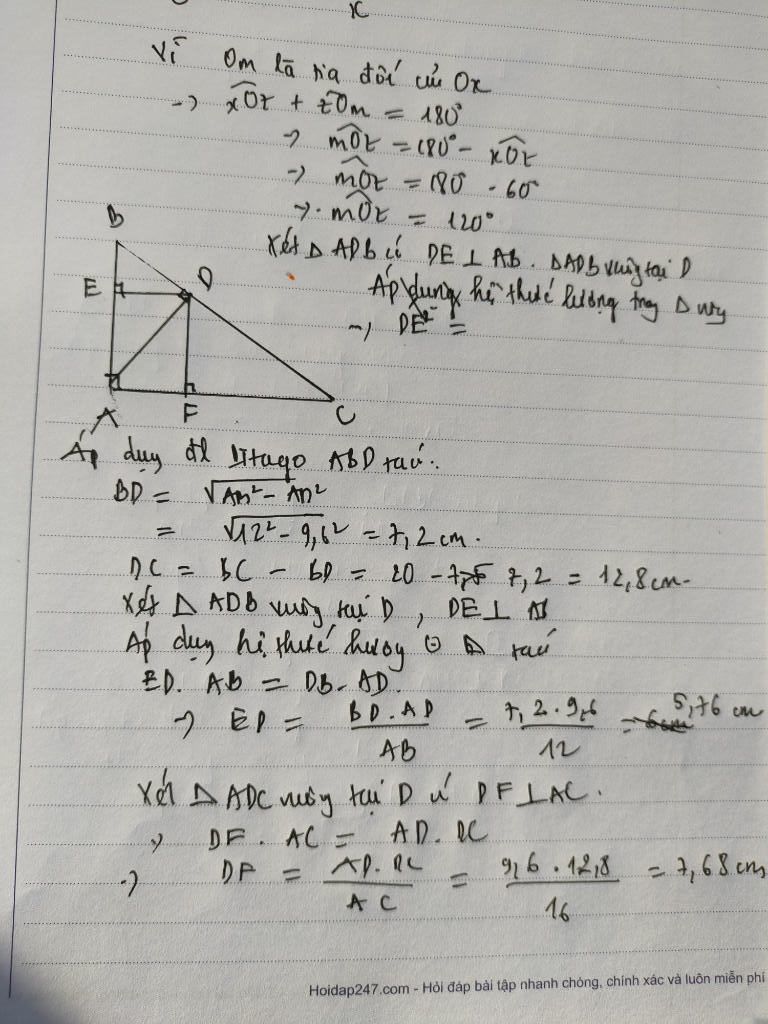 x
Vì Om là tia đối của Ox
→ xOt + tOm = 180°
→ mOt = 180° - xOt
→ mOt = 180 - 60
→ mOt = 120°
Xét △ ADB có DE ⊥ AB. △ADB vuông tại D
Áp dụng hệ thức lượng trong △ vuông
→ DE² =
B
E
D
A
F
C
Áp dụng đl Pitago ABD ta có:
BD = √AB² - AD²
= √12² - 9,6² = 7,2 cm.
DC = BC - BD = 20 - 7,2 = 12,8 cm.
Xét △ ADB vuông tại D, DE ⊥ AB
Áp dụng hệ thức lượng △ ta có
ED. AB = DB. AD.
→ ED = BD. AD / AB = 7,2. 9,6 / 12 = 5,76 cm
Xét △ ADC vuông tại D có DF⊥AC.
→ DF. AC = AD. DC
→ DF = AD. DC / AC = 9,6. 12,8 / 16 = 7,68 cm
Hoidap247.com - Hỏi đáp bài tập nhanh chóng, chính xác và luôn miễn phí